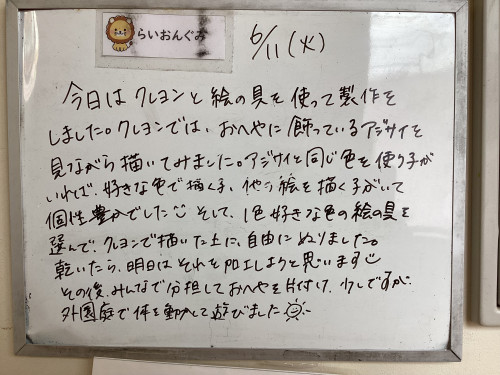 らいおんぐみ
6/11(火)
今日はクレヨンと絵の具を使って製作を
しました。クレヨンでは、おへやに飾っているアジサイを
見ながら描いてみました。アジサイと同じ色を使う子が
いれば、好きな色で描く子、他の絵を描く子がいて
個性豊かでした そして、1色好きな色の絵の具を
選んで、クレヨンで描いた上に、自由にぬりました。
乾いたら、明日はそれを加工しようと思います
その後、みんなで分担しておへやを片付け、少しですが、
外園庭で体を動かして遊びました